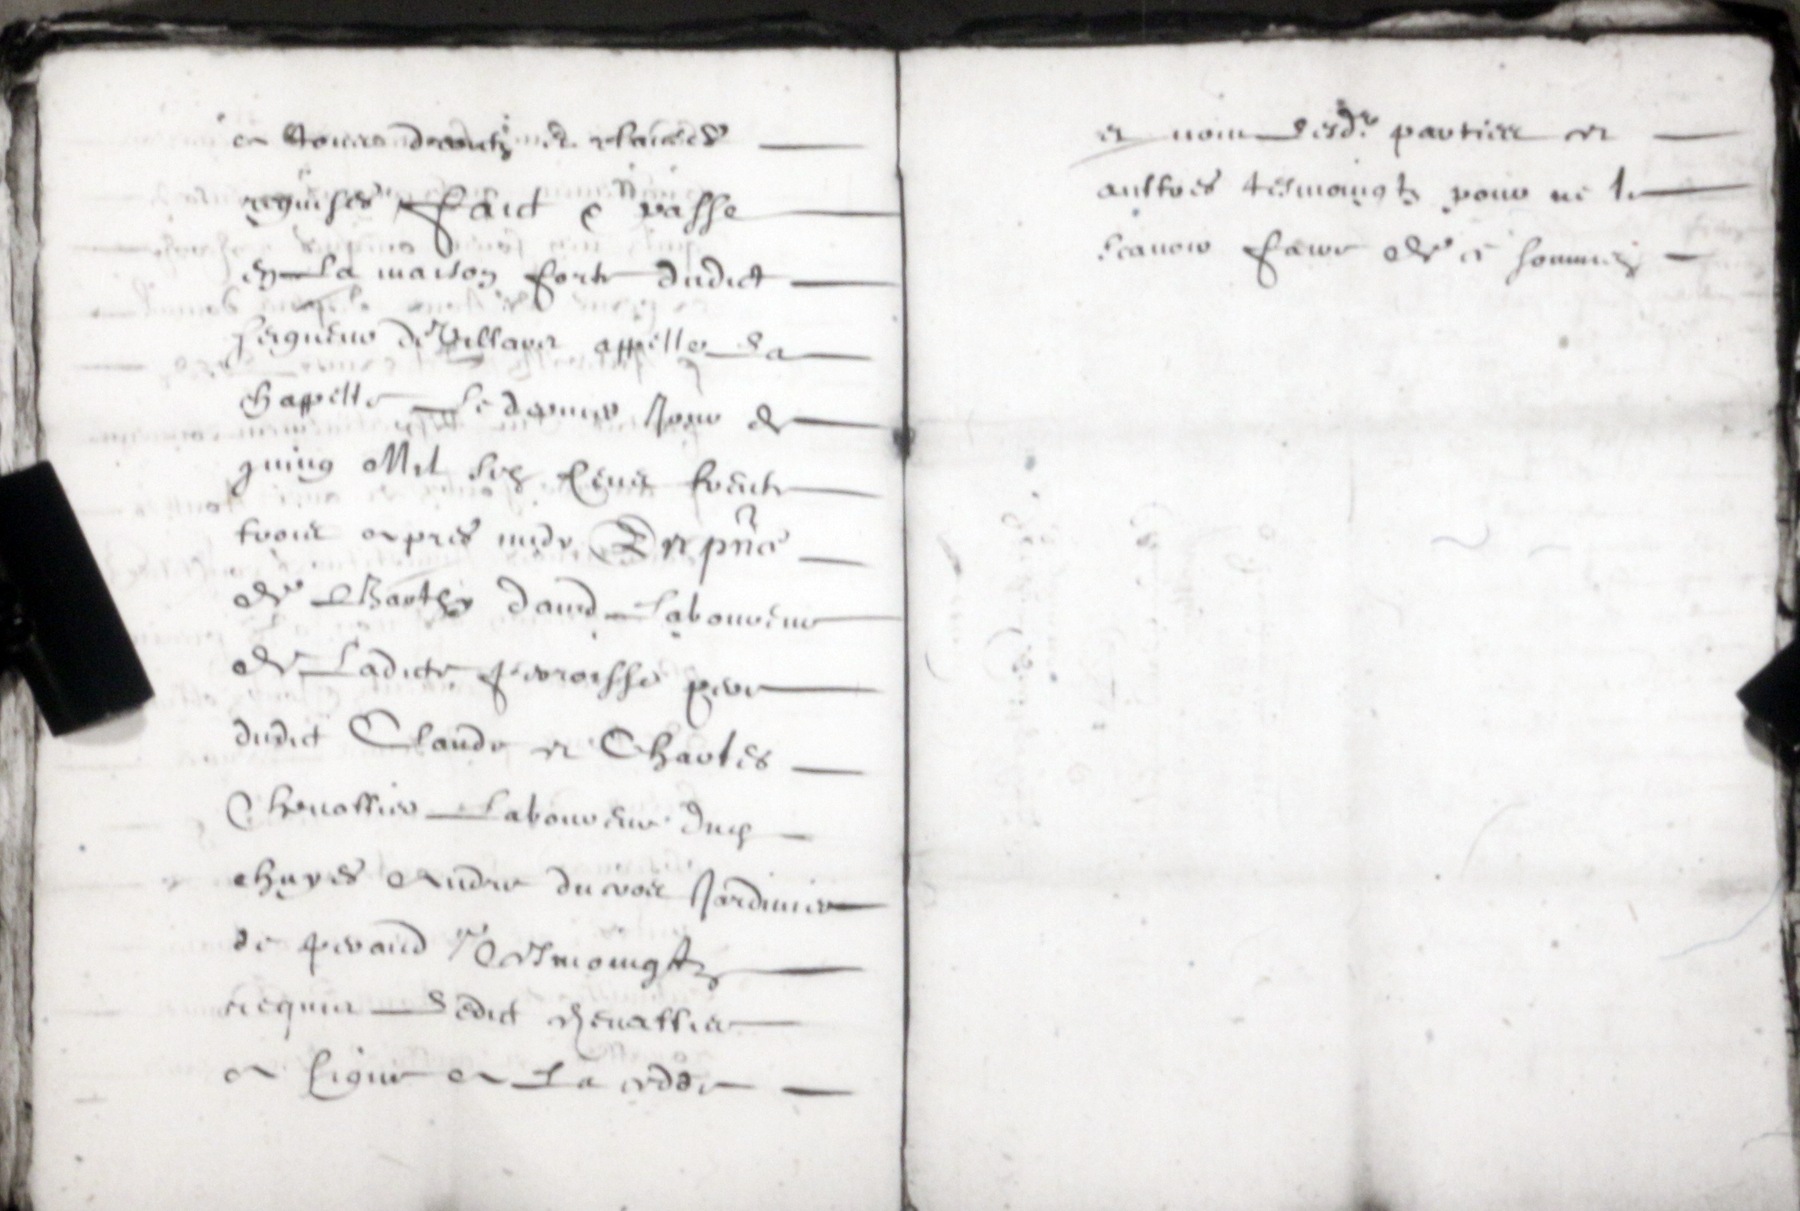 et toutes aultres et clauses
requises Faict & passe
en la maison forte dudict
seigneur de Villaret appellee La
chappelle Le dernier Jour de
juing Mil six Cens trente
trois apres midy En pnce
de Barthy David Laboureur
de Ladicte parroisse pere
dudict Claude et Charles
Chevallier Laboureur dud
chuyes Andre du Jardinier
de peraud Tesmoingtz
requis Ledict chevallier
a signe a La cedde
et non lesd. parties et
aultres tesmoingtz pour ne le
scavoir faire de ce sommez